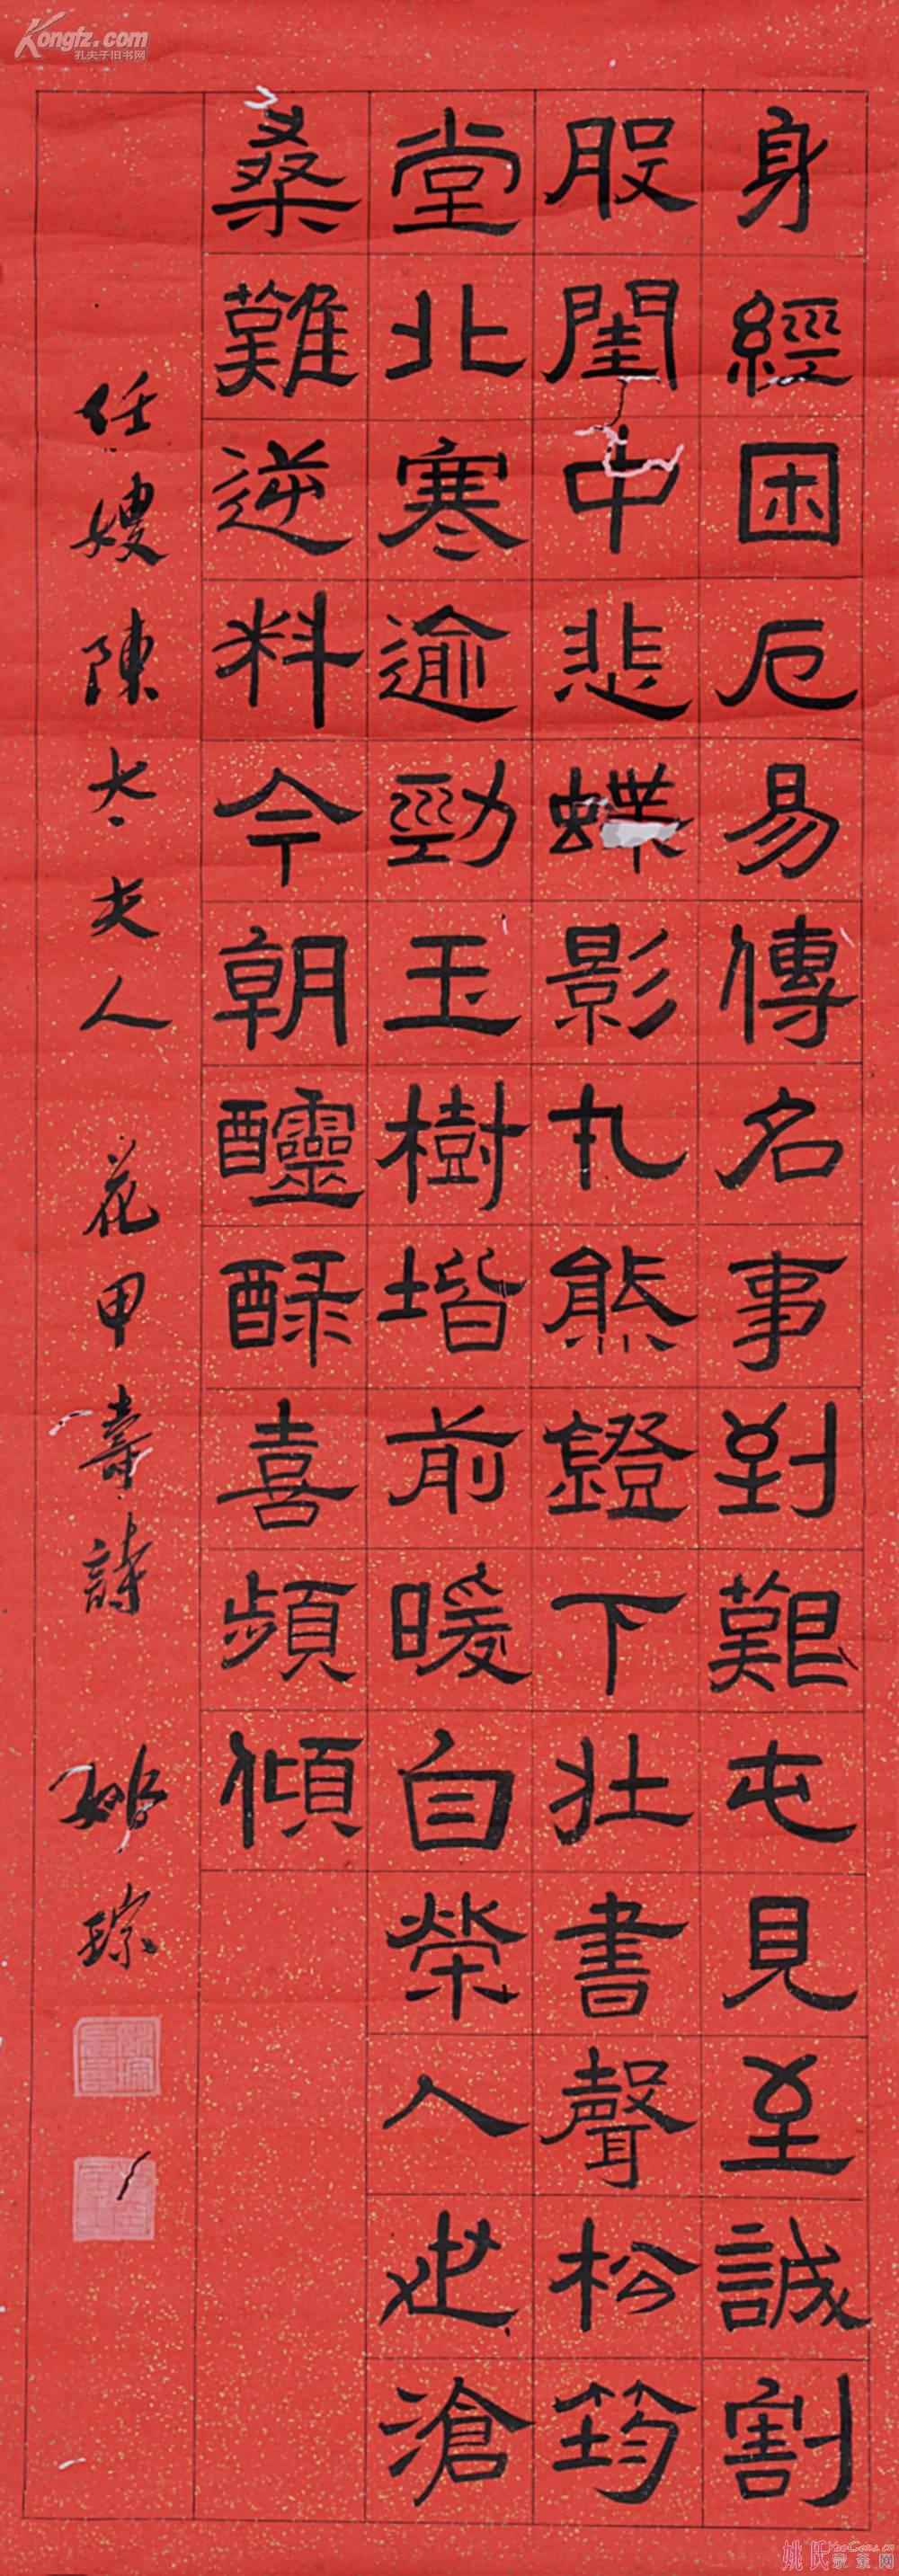 身經困厄易傳名事到艱屯見至誠割
股閨中悲蝶影丸熊鐙下壯書聲松筠
堂北寒逾勁玉樹堦前暖自榮人世滄
桑難逆料今朝醽醁喜頻傾
任嫂陳太夫人 花甲壽詩 姚琮
Kongfz.com
孔夫子旧书网
姚氏宗亲网